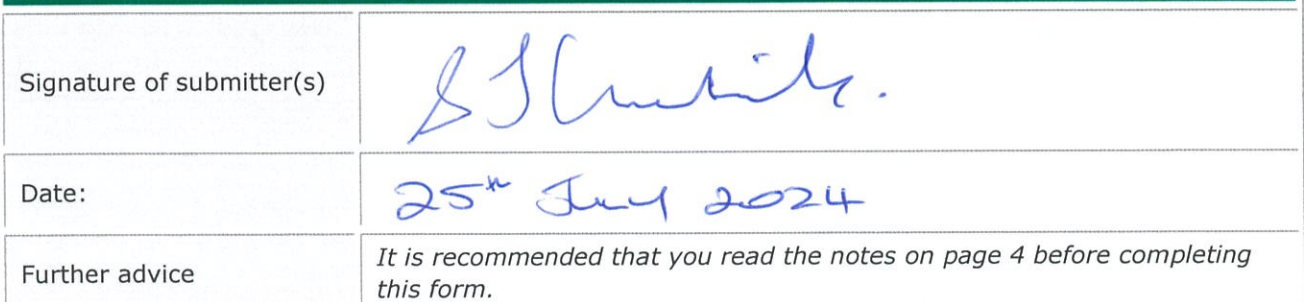 Signature of submitter(s)
Date:
25th July 2024
Further advice
It is recommended that you read the notes on page 4 before completing
this form.